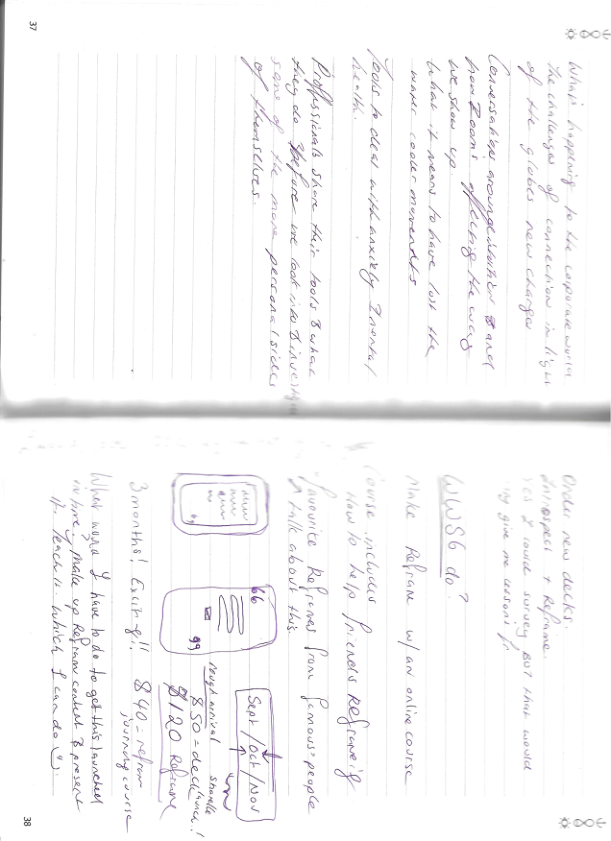 37
What's happening to the corporate world
the challenges of connection in light
of the globes new changes
Conversations around isolation & and
how Zoom's affecting the way
we show up.
What it means to have lost the
water cooler moments
Tools to deal with anxiety & mental
health.
Proffssionals share their tools & what
they do before we look into & investiga
some of the more personal sides
of themselves.
Order new decks.
Introspect + Reframe.
I could survey But that would
give me lessons
WWSG do?
Make Reframe w/ an online course
Course includes
How to help friends Reframeig
favourite Reframes from famous people
& talk about this.
66
99
Sept / Oct / Nov
rough arrival
$50 = deck
$120 Reframe
3 months! Exciting!!
$40 = refram
journey course
What would I have to do to get this launched
in time? Make up Reframe content & present
it. Teach it. Which I can do
38